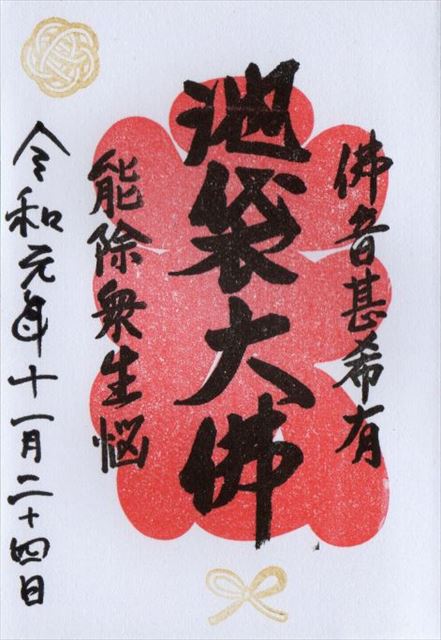 佛音甚希有
池袋大佛
能除衆生悩
令和元年十一月二十四日